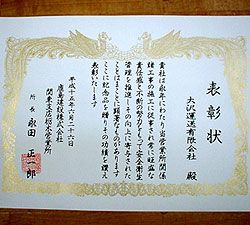 表彰状
大沢運送有限会社 殿
貴社は永年にわたり当営業所関係
諸工事の施工に従事され常に旺盛な
責任感と不断の努力をもって安全衛生
管理を推進しその向上に寄与された
ことはまことに顕著なものがあります
ここに記念品を贈りその功績を讃え
表彰いたします
平成十五年六月二十六日
鹿島道路株式会社
関東支店栃木営業所
所長 永田正一郎